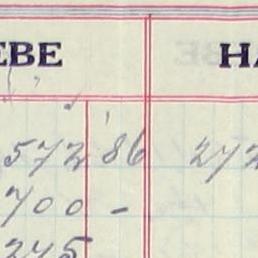 EBE HA
572 86 272
700 -
245